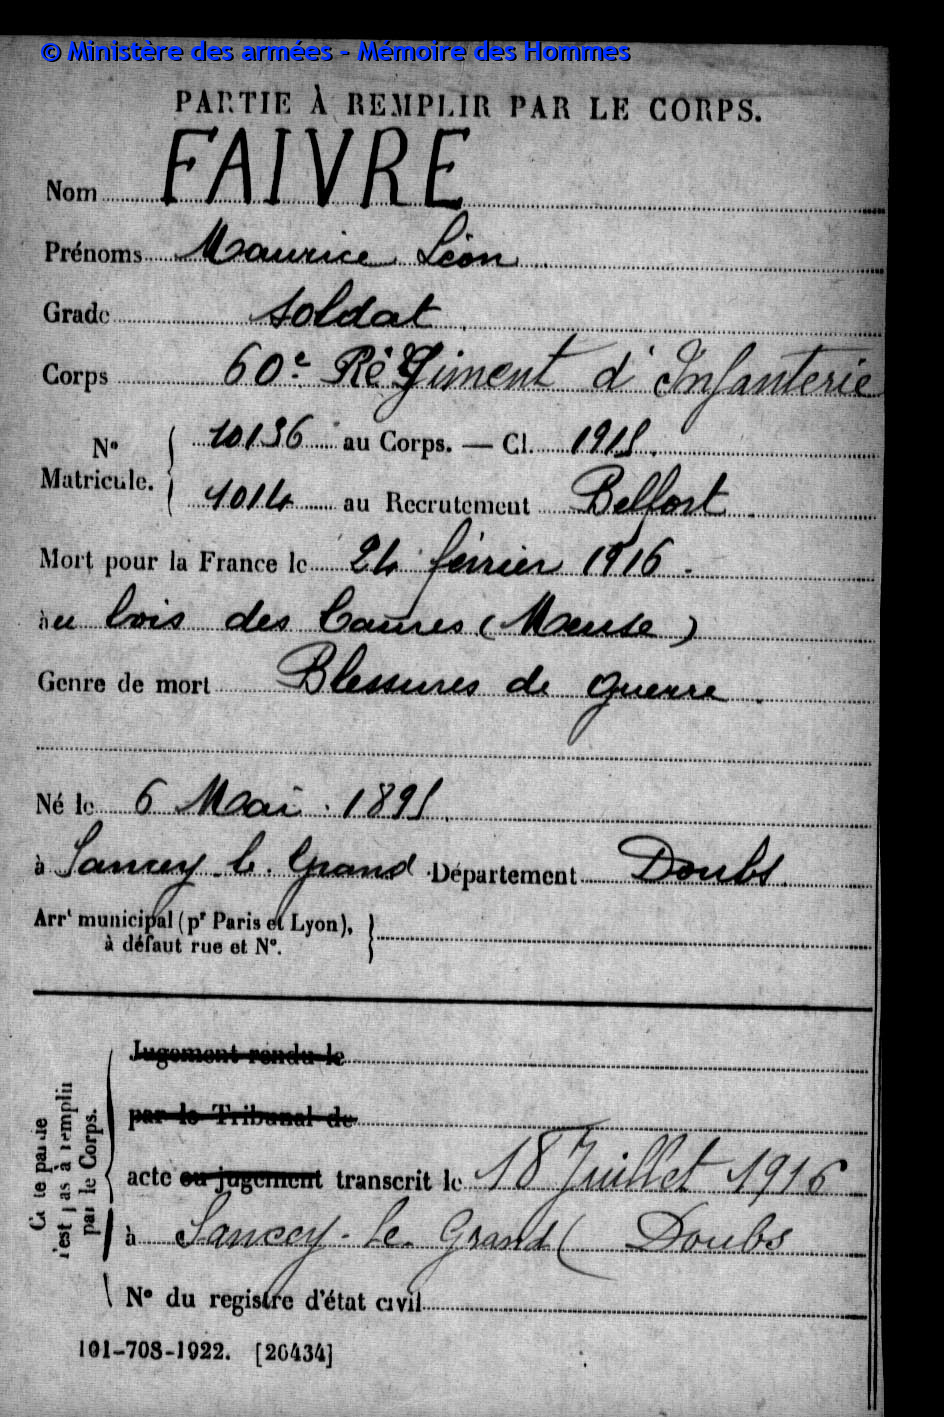 © Ministère des armées - Mémoire des Hommes
PARTIE À REMPLIR PAR LE CORPS.
Nom FAIVRE
Prénoms Maurice Léon
Grade soldat
Corps 60e Régiment d'Infanterie
N° Matricule. 10136 au Corps. — Cl. 1915.
1014 au Recrutement Belfort
Mort pour la France le 24 février 1916.
àu bois des Caures (Meuse)
Genre de mort Blessures de guerre.
Né le 6 Mai 1895
à Sancey-le-Grand Département Doubs
Arrt municipal (pr Paris et Lyon),
à défaut rue et N°.
Jugement rendu le
par le Tribunal de
acte ou jugement transcrit le 18 Juillet 1916
à Sancey-le-Grand (Doubs
N° du registre d'état civil
Cette partie
n'est pas à remplir
par le Corps.
101-708-1922. [26434]